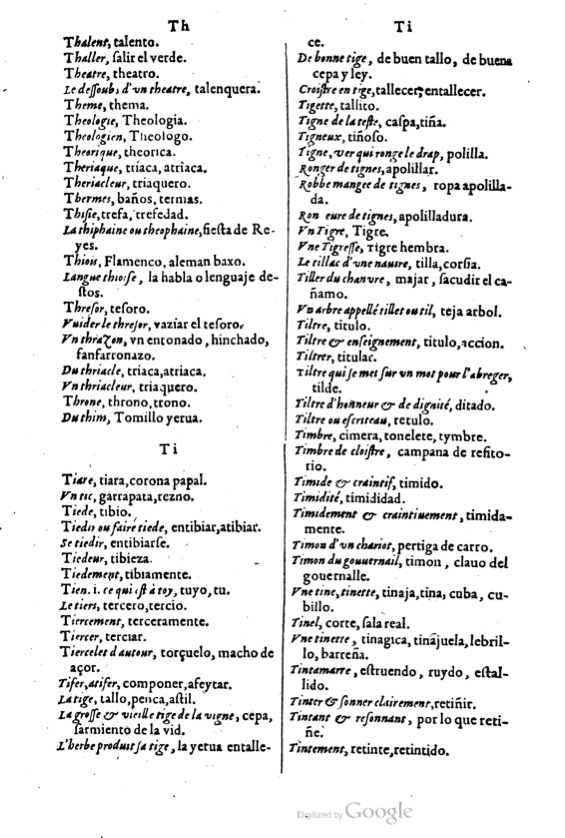 Th
Thalent, talento.
Thaller, ſalir el verde.
Theatre, theatro.
Le deſſoubs d'vn theatre, talenquera.
Theme, thema.
Theologie, Theologia.
Theologien, Theologo.
Theorique, theorica.
Theriaque, triaca, atriaca.
Theriacleur, triaquero.
Thermes, baños, termas.
Thiſie, trefa, trefedad.
La thiphaine ou theophaine, fieſta de Re-
yes.
Thiois, Flamenco, aleman baxo.
Langue thioiſe, la habla o lenguaje de-
ſtos.
Threſor, teſoro.
Vuider le threſor, vaziar el teſoro.
Vn thrazon, vn entonado, hinchado,
fanfarronazo.
Du thriacle, triaca, atriaca.
Vn thriacleur, triaquero.
Throne, throno, trono.
Du thim, Tomillo yerua.
Ti
Tiare, tiara, corona papal.
Vn tic, garrapata, rezno.
Tiede, tibio.
Tiedir ou faire tiede, entibiar, atibiar.
Se tiedir, entibiarſe.
Tiedeur, tibieza.
Tiedement, tibiamente.
Tien. i. ce qui eſt à toy, tuyo, tu.
Le tiers, tercero, tercio.
Tiercement, terceramente.
Tiercer, terciar.
Tiercelet d'autour, torçuelo, macho de
açor.
Tifer, atifer, componer, afeytar.
La tige, tallo, penca, aſtil.
La groſſe & vieille tige de la vigne, cepa,
ſarmiento de la vid.
L'herbe produit ſa tige, la yerua entalle-
Ti
ce.
De bonne tige, de buen tallo, de buena
cepa y ley.
Croiſtre en tige, tallecer, entallecer.
Tigette, tallito.
Tigne de la teſte, caſpa, tiña.
Tigneux, tiñoſo.
Tigne, ver qui ronge le drap, polilla.
Ronger de tignes, apolillar.
Robbe mangee de tignes, ropa apolilla-
da.
Ron eure de tignes, apolilladura.
Vn Tigre, Tigre.
Vne Tigreſſe, Tigre hembra.
Le tillac d'vne nauire, tilla, corſia.
Tiller du chanure, majar, ſacudir el ca-
ñamo.
Vn arbre appellé tillet ou til, teja arbol.
Tiltre, titulo.
Tiltre & enſeignement, titulo, accion.
Tiltrer, titular.
Tiltre qui ſe met ſur vn mot pour l'abreger,
tilde.
Tiltre d'honneur & de dignité, ditado.
Tiltre ou eſcriteau, retulo.
Timbre, cimera, tonelete, tymbre.
Timbre de cloiſtre, campana de refito-
rio.
Timide & craintif, timido.
Timidité, timididad.
Timidement & craintiuement, timida-
mente.
Timon d'vn chariot, pertiga de carro.
Timon du gouuernail, timon, clauo del
gouernalle.
Vne tine, tinette, tinaja, tina, cuba, cu-
billo.
Tinel, corte, ſala real.
Vne tinette, tinagica, tinajuela, lebril-
lo, barreña.
Tintamarre, eſtruendo, ruydo, eſtal-
lido.
Tinter & ſonner clairement, retiñir.
Tintant & reſonnant, por lo que reti-
ñe.
Tintement, retinte, retintido.
Digitized by Google